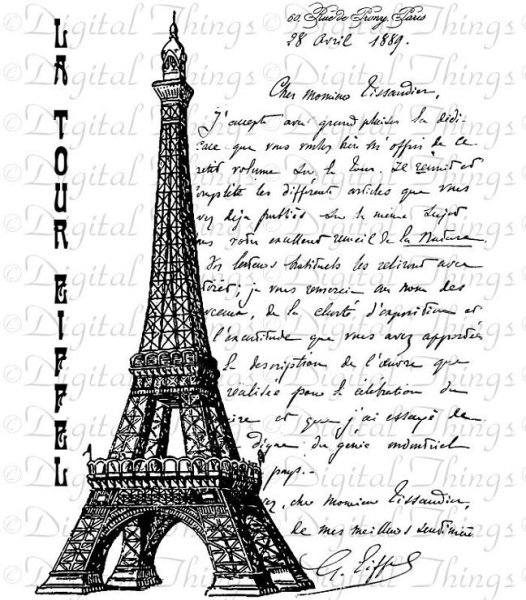 LA TOUR EIFFEL
60, Rue de Prony, Paris
28 Avril 1889.
Cher monsieur Tissandier,
J'accepte avec grand plaisir la dédi-
cace que vous voulez bien m'offrir de ce
petit volume sur la Tour. Il réunit et
complète les différents articles que vous
avez déjà publiés sur le même sujet
dans votre excellent recueil de la Nature
Vos lecteurs habituels les reliront avec
je vous remercie au nom des
de la clarté d'exposition et
l'exactitude que vous avez apportées
la description de l'œuvre que
réalisée pour la célébration du
et que j'ai essayé de
digne du génie industriel
pays.
cher monsieur Tissandier,
de mes meilleurs sentiments
G. Eiffel
©Digital Things